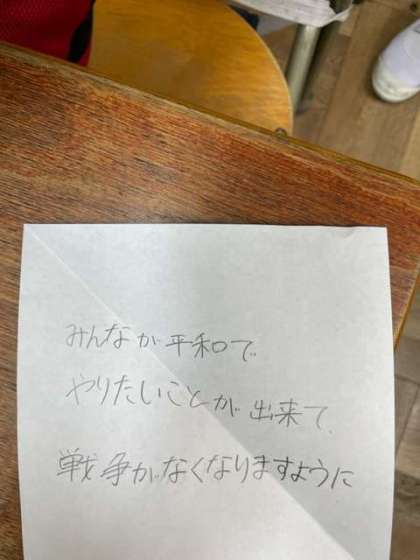 みんなが平和で
やりたいことが出来て、
戦争がなくなりますように